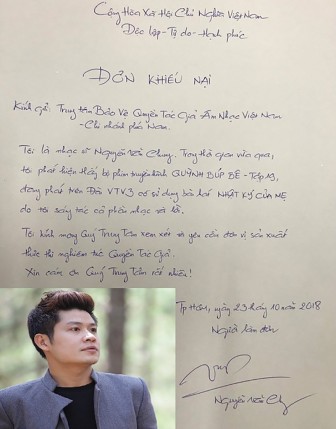 Cộng Hòa Xã Hội Chủ Nghĩa Việt Nam
Độc lập - Tự do - Hạnh phúc
ĐƠN KHIẾU NẠI
Kính gửi: Trung tâm Bảo Vệ Quyền Tác Giả Âm Nhạc Việt Nam
- Chi nhánh phía Nam.
Tôi là nhạc sĩ Nguyễn Văn Chung. Trong thời gian vừa qua,
tôi phát hiện thấy bộ phim truyền hình QUỲNH BÚP BÊ - Tập 13,
đang phát trên Đài VTV3 có sử dụng bài hát NHẬT KÝ CỦA MẸ
do tôi sáng tác cả phần nhạc và lời.
Tôi kính mong Quý Trung Tâm xem xét và yêu cầu đơn vị sản xuất
thực thi nghiêm túc Quyền Tác Giả.
Xin cám ơn Quý Trung Tâm rất nhiều!
Tp HCM, ngày 23 tháng 10 năm 2018
Người làm đơn
Nguyễn Văn Chung